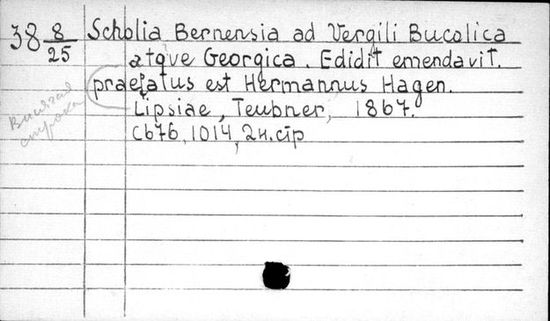 38 8/25 Scholia Bernensia ad Vergili Bucolica
atqve Georgica. Edidit emendavit.
praefatus est Hermannus Hagen.
Lipsiae, Teubner, 1867.
Висячая
строка
Cb76, 1014, 2н. стр